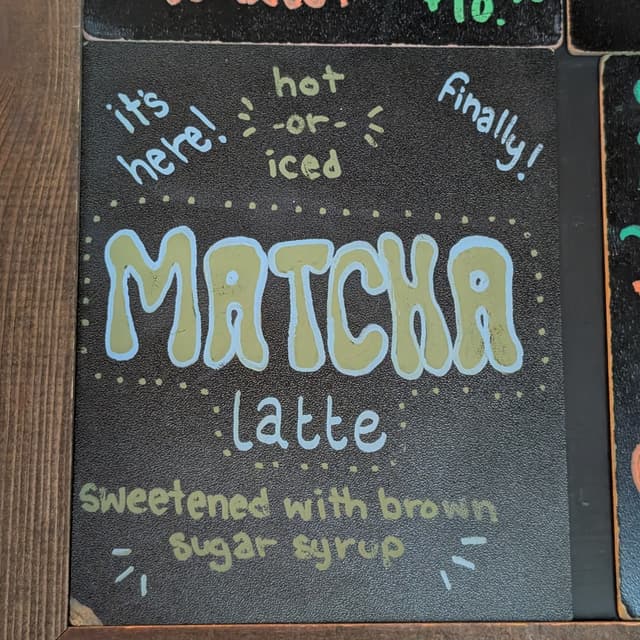 it's
here!
hot
-or-
iced
finally!
MATCHA
latte
sweetened with brown
sugar syrup